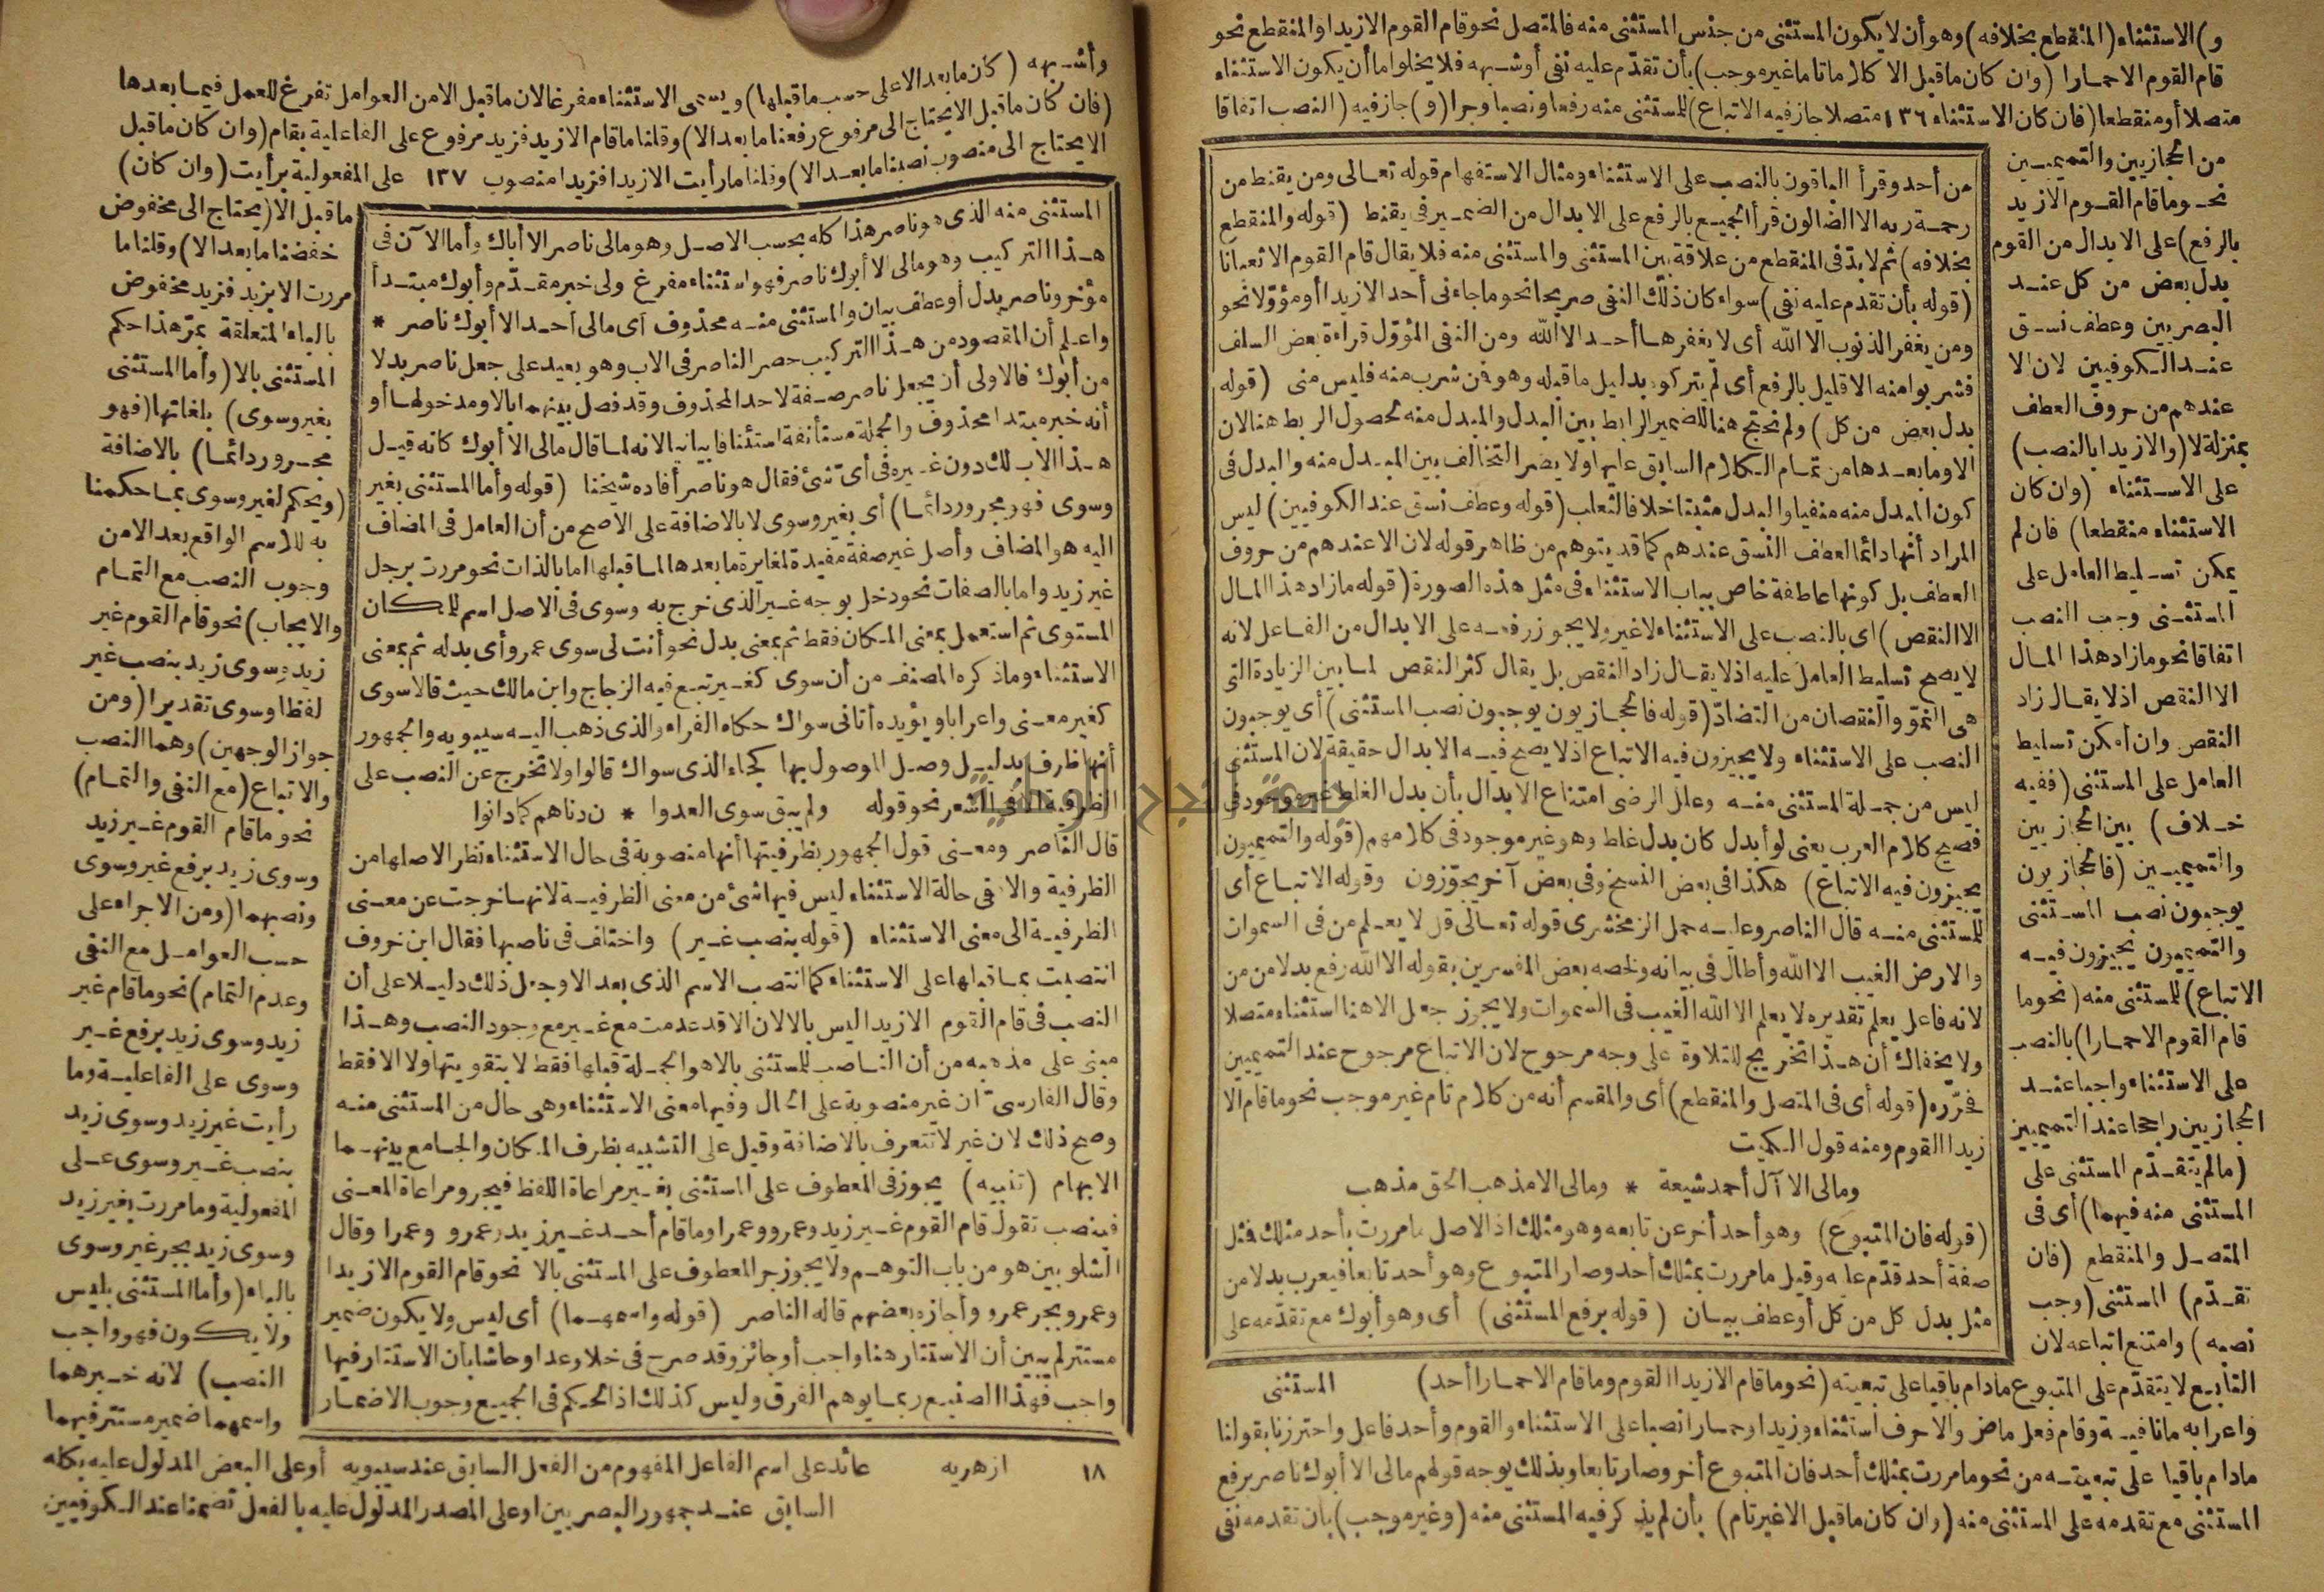 و) الاستثناء (المنقطع بخلافه) وهو أن لا يكون المستثنى من جنس المستثنى منه فالمتصل نحو قام القوم الا زيدا والمنقطع نحو
قام القوم الا حمارا (وان كان ماقبل الا كلاما تاما غير موجب) بأن تقدّم عليه نفى أوشبهه فلا يخلوا ما أن يكون الاستثناء
متصلا أو منقطعا (فان كان الاستثناء ١٣٦ متصلا جاز فيه الاتباع) للمستثنى منه رفعا ونصبا وجرا (و) جاز فيه (النصب اتفاقا
من الحجازيين والتميميين
نحو ما قام القوم الا زيد
بالرفع) على الابدال من القوم
بدل بعض من كل عند
البصريين وعطف نسق
عند الكوفيين لان الا
عندهم من حروف العطف
بمنزلة لا (والا زيدا بالنصب)
على الاستثناء (وان كان
الاستثناء منقطعا) فان لم
يمكن تسليط العامل على
المستثنى وجب النصب
اتفاقا نحو ما زاد هذا المال
الا النقص اذ لا يقال زاد
النقص وان أمكن تسليط
العامل على المستثنى (ففيه
خلاف) بين الحجازيين
والتميميين (فالحجازيون
يوجبون نصب المستثنى
والتميميون يجيزون فيه
الاتباع) للمستثنى منه (نحو ما
قام القوم الا حمارا) بالنصب
على الاستثناء واجبا عند
الحجازيين راجحا عند التميميين
(مالم يتقدّم المستثنى على
المستثنى منه فيهما) أى فى
المتصل والمنقطع (فان
تقدّم) المستثنى (وجب
نصبه) وامتنع اتباعه لان
التابع لا يتقدّم على المتبوع مادام باقيا على تبعيته (نحو ما قام الا زيدا القوم وما قام الا حمارا أحد) المستثنى
واعرابه مانافية وقام فعل ماض والا حرف استثناء وزيدا وحمارا نصبا على الاستثناء والقوم وأحد فاعل واحترزنا بقولنا
مادام باقيا على تبعيته من نحو ما مررت بمثلك أحد فان المتبوع أخر وصار تابعا وبذلك يوجه قولهم مالى الا أبوك ناصر برفع
المستثنى مع تقدمه على المستثنى منه (وان كان ماقبل الا غير تام) بأن لم يذكر فيه المستثنى منه (وغير موجب) بان تقدمه نفى
من أحد وقرأ الباقون بالنصب على الاستثناء ومثال الاستفهام قوله تعالى ومن يقنط من
رحمة ربه الا الضالون قرأ الجميع بالرفع على الابدال من الضمير فى يقنط (قوله والمنقطع
بخلافه) ثم لا بدّ فى المنقطع من علاقة بين المستثنى والمستثنى منه فلا يقال قام القوم الا ثعبانا
(قوله بأن تقدم عليه نفى) سواء كان ذلك النفى صريحا نحو ما جاءنى أحد الا زيدا أو مؤوّلا نحو
ومن يغفر الذنوب الا الله أى لا يغفرها أحد الا الله ومن النفى المؤوّل قراءة بعض السلف
فشربوا منه الا قليل بالرفع أى لم يتركوه بدليل ماقبله وهو فمن شرب منه فليس منى (قوله
بدل بعض من كل) ولم نحتج هنا للضمير الرابط بين البدل والمبدل منه لحصول الربط هنا لان
الا ومابعدها من تمام الكلام السابق عليها ولا يضر التخالف بين المبدل منه والبدل فى
كون المبدل منه منفيا والبدل مثبتا خلافا لثعلب (قوله وعطف نسق عند الكوفيين) ليس
المراد أنها دائما لعطف النسق عندهم كما قد يتوهم من ظاهر قوله لان الا عندهم من حروف
العطف بل كونها عاطفة خاص بباب الاستثناء فى مثل هذه الصورة (قوله ما زاد هذا المال
الا النقص) اى بالنصب على الاستثناء لا غير ولا يجوز رفعه على الابدال من الفاعل لانه
لا يصح تسليط العامل عليه اذ لا يقال زاد النقص بل يقال كثر النقص لما بين الزيادة التى
هى النموّ والنقصان من التضادّ (قوله فالحجازيون يوجبون نصب المستثنى) أى يوجبون
النصب على الاستثناء ولا يجيزون فيه الاتباع اذ لا يصح فيه الابدال حقيقة لان المستثنى
ليس من جملة المستثنى منه وعلل الرضى امتناع الابدال بأن بدل الغلط غير موجود فى
فصيح كلام العرب يعنى لو أبدل كان بدل غلط وهو غير موجود فى كلامهم (قوله والتميميون
يجيزون فيه الاتباع) هكذا فى بعض النسخ وفى بعض آخر يجوّزون وقوله الاتباع أى
للمستثنى منه قال الناصر وعليه حمل الزمخشرى قوله تعالى قل لا يعلم من فى السموات
والارض الغيب الا الله وأطال فى بيانه ولخصه بعض المفسرين بقوله الا الله رفع بدلا من من
لانه فاعل يعلم تقديره لا يعلم الا الله الغيب فى السموات ولا يجوز جعل الا هنا استثناء متصلا
ولا يخفاك أن هذا تخريج للتلاوة على وجه مرجوح لان الاتباع مرجوح عند التميميين
فحرّره (قوله أى فى المتصل والمنقطع) أى والمقسم أنه من كلام تام غير موجب نحو ما قام الا
زيدا القوم ومنه قول الكميت
ومالى الا آل أحمد شيعة * ومالى الا مذهب الحق مذهب
(قوله فان المتبوع) وهو أحد أخر عن تابعه وهو مثلك اذ الاصل ما مررت بأحد مثلك فمثل
صفة أحد قدّم عليه وقيل ما مررت بمثلك أحد وصار المتبوع وهو أحد تابعا فيعرب بدلا من
مثل بدل كل من كل أو عطف بيان (قوله برفع المستثنى) أى وهو أبوك مع تقدّمه على
وأشبهه (كان مابعد الا على حسب ماقبلها) ويسمى الاستثناء مفرغا لان ماقبل الا من العوامل تفرغ للعمل فيما بعدها
(فان كان ماقبل الا يحتاج الى مرفوع رفعنا مابعد الا) وقلنا ما قام الا زيد فزيد مرفوع على الفاعلية بقام (وان كان ماقبل
الا يحتاج الى منصوب نصبنا مابعد الا) وقلنا ما رأيت الا زيدا فزيدا منصوب ١٣٧ على المفعولية برأيت (وان كان)
ماقبل الا (يحتاج الى مخفوض
خفضنا مابعد الا) وقلنا ما
مررت الا بزيد فزيد مخفوض
بالباء المتعلقة بمرّ هذا حكم
المستثنى بالا (وأما المستثنى
بغير وسوى) بلغاتها (فهو
مجرور دائما) بالاضافة
(ويحكم لغير وسوى بما حكمنا
به للاسم الواقع بعد الا من
وجوب النصب مع التمام
والايجاب) نحو قام القوم غير
زيد وسوى زيد بنصب غير
لفظا وسوى تقديرا (ومن
جواز الوجهين) وهما النصب
والاتباع (مع النفى والتمام)
نحو ما قام القوم غير زيد
وسوى زيد برفع غير وسوى
ونصبهما (ومن الاجراء على
حسب العوامل مع النفى
وعدم التمام) نحو ما قام غير
زيد وسوى زيد برفع غير
وسوى على الفاعلية وما
رأيت غير زيد وسوى زيد
بنصب غير وسوى على
المفعولية وما مررت بغير زيد
وسوى زيد بجر غير وسوى
بالباء (وأما المستثنى بليس
ولا يكون فهو واجب
النصب) لانه خبرهما
واسمهما ضمير مستتر فيهما
المستثنى منه الذى هو ناصر هذا كله بحسب الاصل وهو مالى ناصر الا أباك وأما الآن فى
هذا التركيب وهو مالى الا أبوك ناصر فهو استثناء مفرغ ولى خبر مقدّم وأبوك مبتدأ
مؤخر وناصر بدل أو عطف بيان والمستثنى منه محذوف أى مالى أحد الا أبوك ناصر *
واعلم أن المقصود من هذا التركيب حصر الناصر فى الاب وهو بعيد على جعل ناصر بدلا
من أبوك فالاولى أن يجعل ناصر صفة لاحد المحذوف وقد فصل بينهما بالا ومدخولها أو
أنه خبر مبتدا محذوف والجملة مستأنفة استئنافا بيانيا لانه لما قال مالى الا أبوك كانه قيل
هذا الاب لك دون غيره فى أى شئ فقال هو ناصر أفاده شيخنا (قوله وأما المستثنى بغير
وسوى فهو مجرور دائما) أى بغير وسوى لا بالاضافة على الاصح من أن العامل فى المضاف
اليه هو المضاف وأصل غير صفة مفيدة لمغايرة مابعدها لما قبلها اما بالذات نحو مررت برجل
غير زيد واما بالصفات نحو دخل بوجه غير الذى خرج به وسوى فى الاصل اسم للمكان
المستوى ثم استعمل بمعنى المكان فقط ثم بمعنى بدل نحو أنت لى سوى عمرو أى بدله ثم بمعنى
الاستثناء وما ذكره المصنف من أن سوى كغير تبع فيه الزجاج وابن مالك حيث قالا سوى
كغير معنى واعرابا ويؤيده أتانى سواك حكاه الفراء والذى ذهب اليه سيبويه والجمهور
أنها ظرف بدليل وصل الموصول بها كجاء الذى سواك قالوا ولا تخرج عن النصب على
الظرفية الا فى الشعر نحو قوله ولم يبق سوى العدوا * ن دناهم كما دانوا
قال الناصر ومعنى قول الجمهور بظرفيتها أنها منصوبة فى حال الاستثناء نظر الاصلها من
الظرفية والا فى حالة الاستثناء ليس فيها شئ من معنى الظرفية لانها خرجت عن معنى
الظرفية الى معنى الاستثناء (قوله بنصب غير) واختلف فى ناصبها فقال ابن خروف
انتصبت بما قبلها على الاستثناء كما انتصب الاسم الذى بعد الا وجعل ذلك دليلا على أن
النصب فى قام القوم الا زيدا ليس بالا لان الا قد عدمت مع غير مع وجود النصب وهذا
مبنى على مذهبه من أن الناصب للمستثنى بالا هو الجملة قبلها فقط لا بتقويتها ولا الا فقط
وقال الفارسى ان غير منصوبة على الحال وفيها معنى الاستثناء وهى حال من المستثنى منه
وصح ذلك لان غير لا تتعرف بالاضافة وقيل على التشبيه بظرف المكان والجامع بينهما
الابهام (تنبيه) يجوز فى المعطوف على المستثنى بغير مراعاة اللفظ فيجر ومراعاة المعنى
فينصب تقول قام القوم غير زيد وعمرو وعمرا وما قام أحد غير زيد وعمرو وعمرا وقال
الشلوبين هو من باب التوهم ولا يجوز جر المعطوف على المستثنى بالا نحو قام القوم الا زيدا
وعمرو بجر عمرو وأجازه بعضهم قاله الناصر (قوله واسمهما) أى ليس ولا يكون ضمير
مستتر لم يبين أن الاستتار هنا واجب أو جائز وقد صرح فى خلا وعدا وحاشا بأن الاستتار فيها
واجب فهذا الصنيع ربما يوهم الفرق وليس كذلك اذ الحكم فى الجميع وجوب الاضمار
١٨ ازهريه عائد على اسم الفاعل المفهوم من الفعل السابق عند سيبويه أو على البعض المدلول عليه بكله
السابق عند جمهور البصريين او على المصدر المدلول عليه بالفعل تضمنا عند الكوفيين